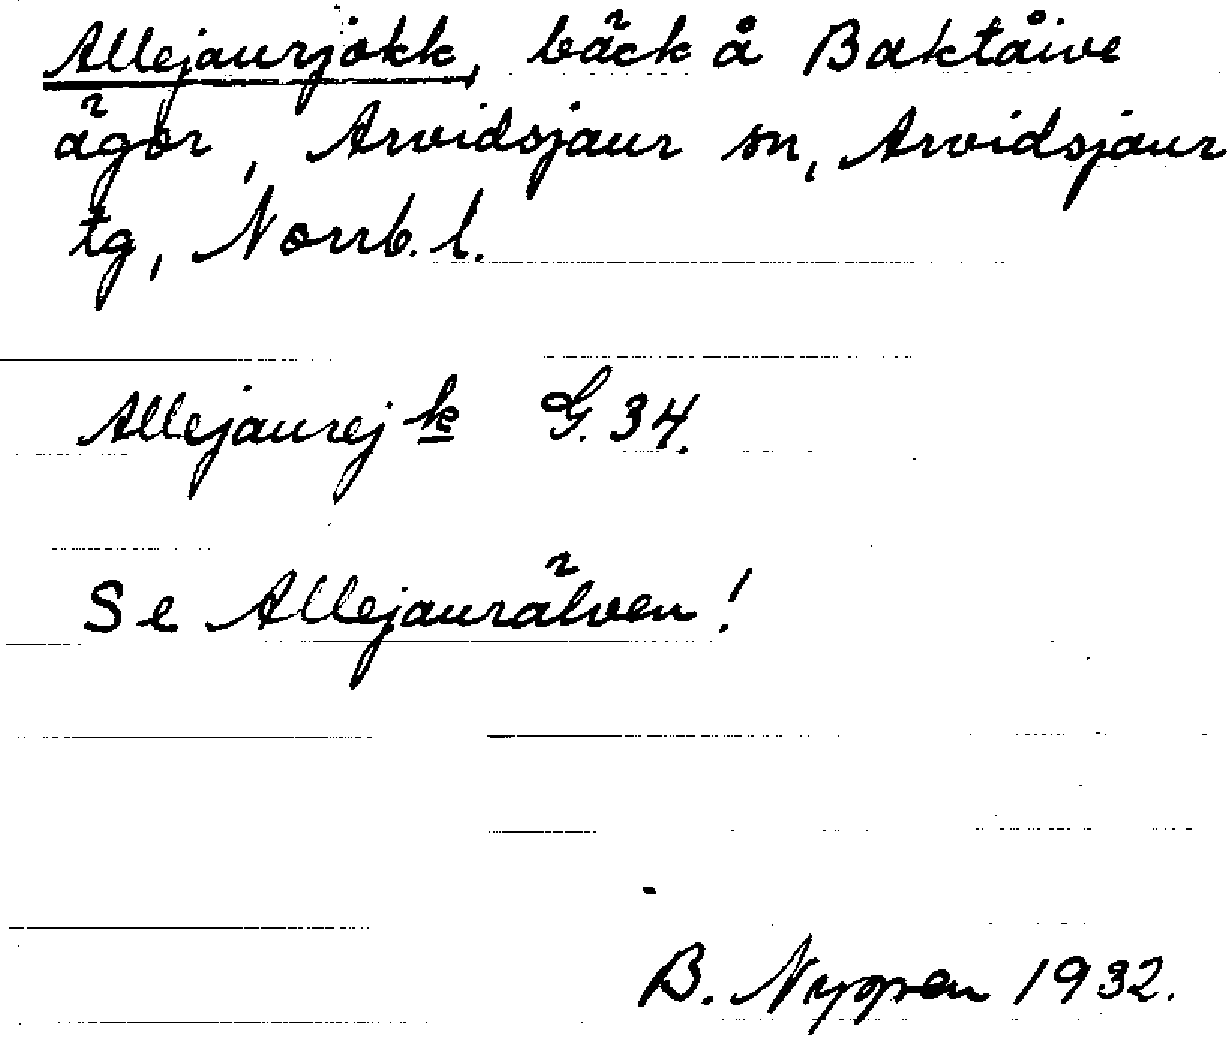 Allejaurjokk, bäck å Baktåive
ägor, Arvidsjaur sn, Arvidsjaur
tg, Norrb. l.
Allejaurejk G. 34.
Se Allejaurälven!
B. 1932.